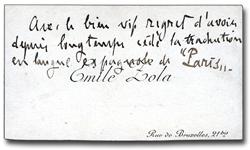 Avec le bien vif regret d'avoir
depuis longtemps cédé la traduction
en langue espagnole de "Paris".
Emile Zola
Rue de Bruxelles, 21 bis